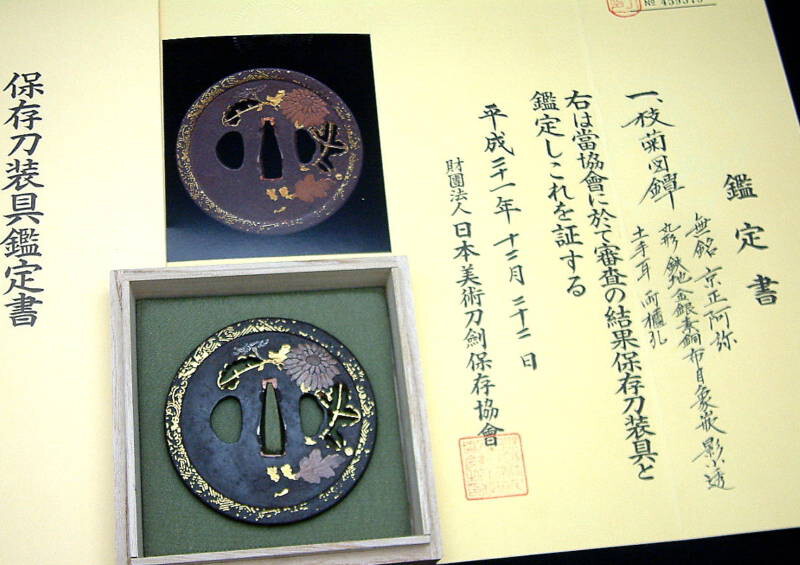 鑑定書
一、枝菊図鐔
無銘 京正阿弥
丸形 鉄地 金銀素銅布目象嵌 影透
土手耳 両櫃孔
右は當協會に於て審査の結果保存刀装具と
鑑定しこれを証する
平成二十一年 十二月二十二日
財團法人日本美術刀劍保存協會
保存刀装具鑑定書